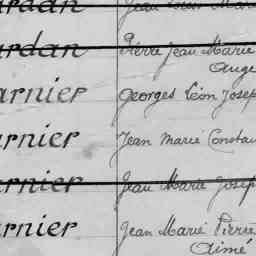 ardan Jean Louis Mar
ardan Pierre Jean Marie
Auge
arnier Georges Léon Josep
arnier Jean Marie Constan
arnier Jean Marie Josep
arnier Jean Marie Pierre
Aimé